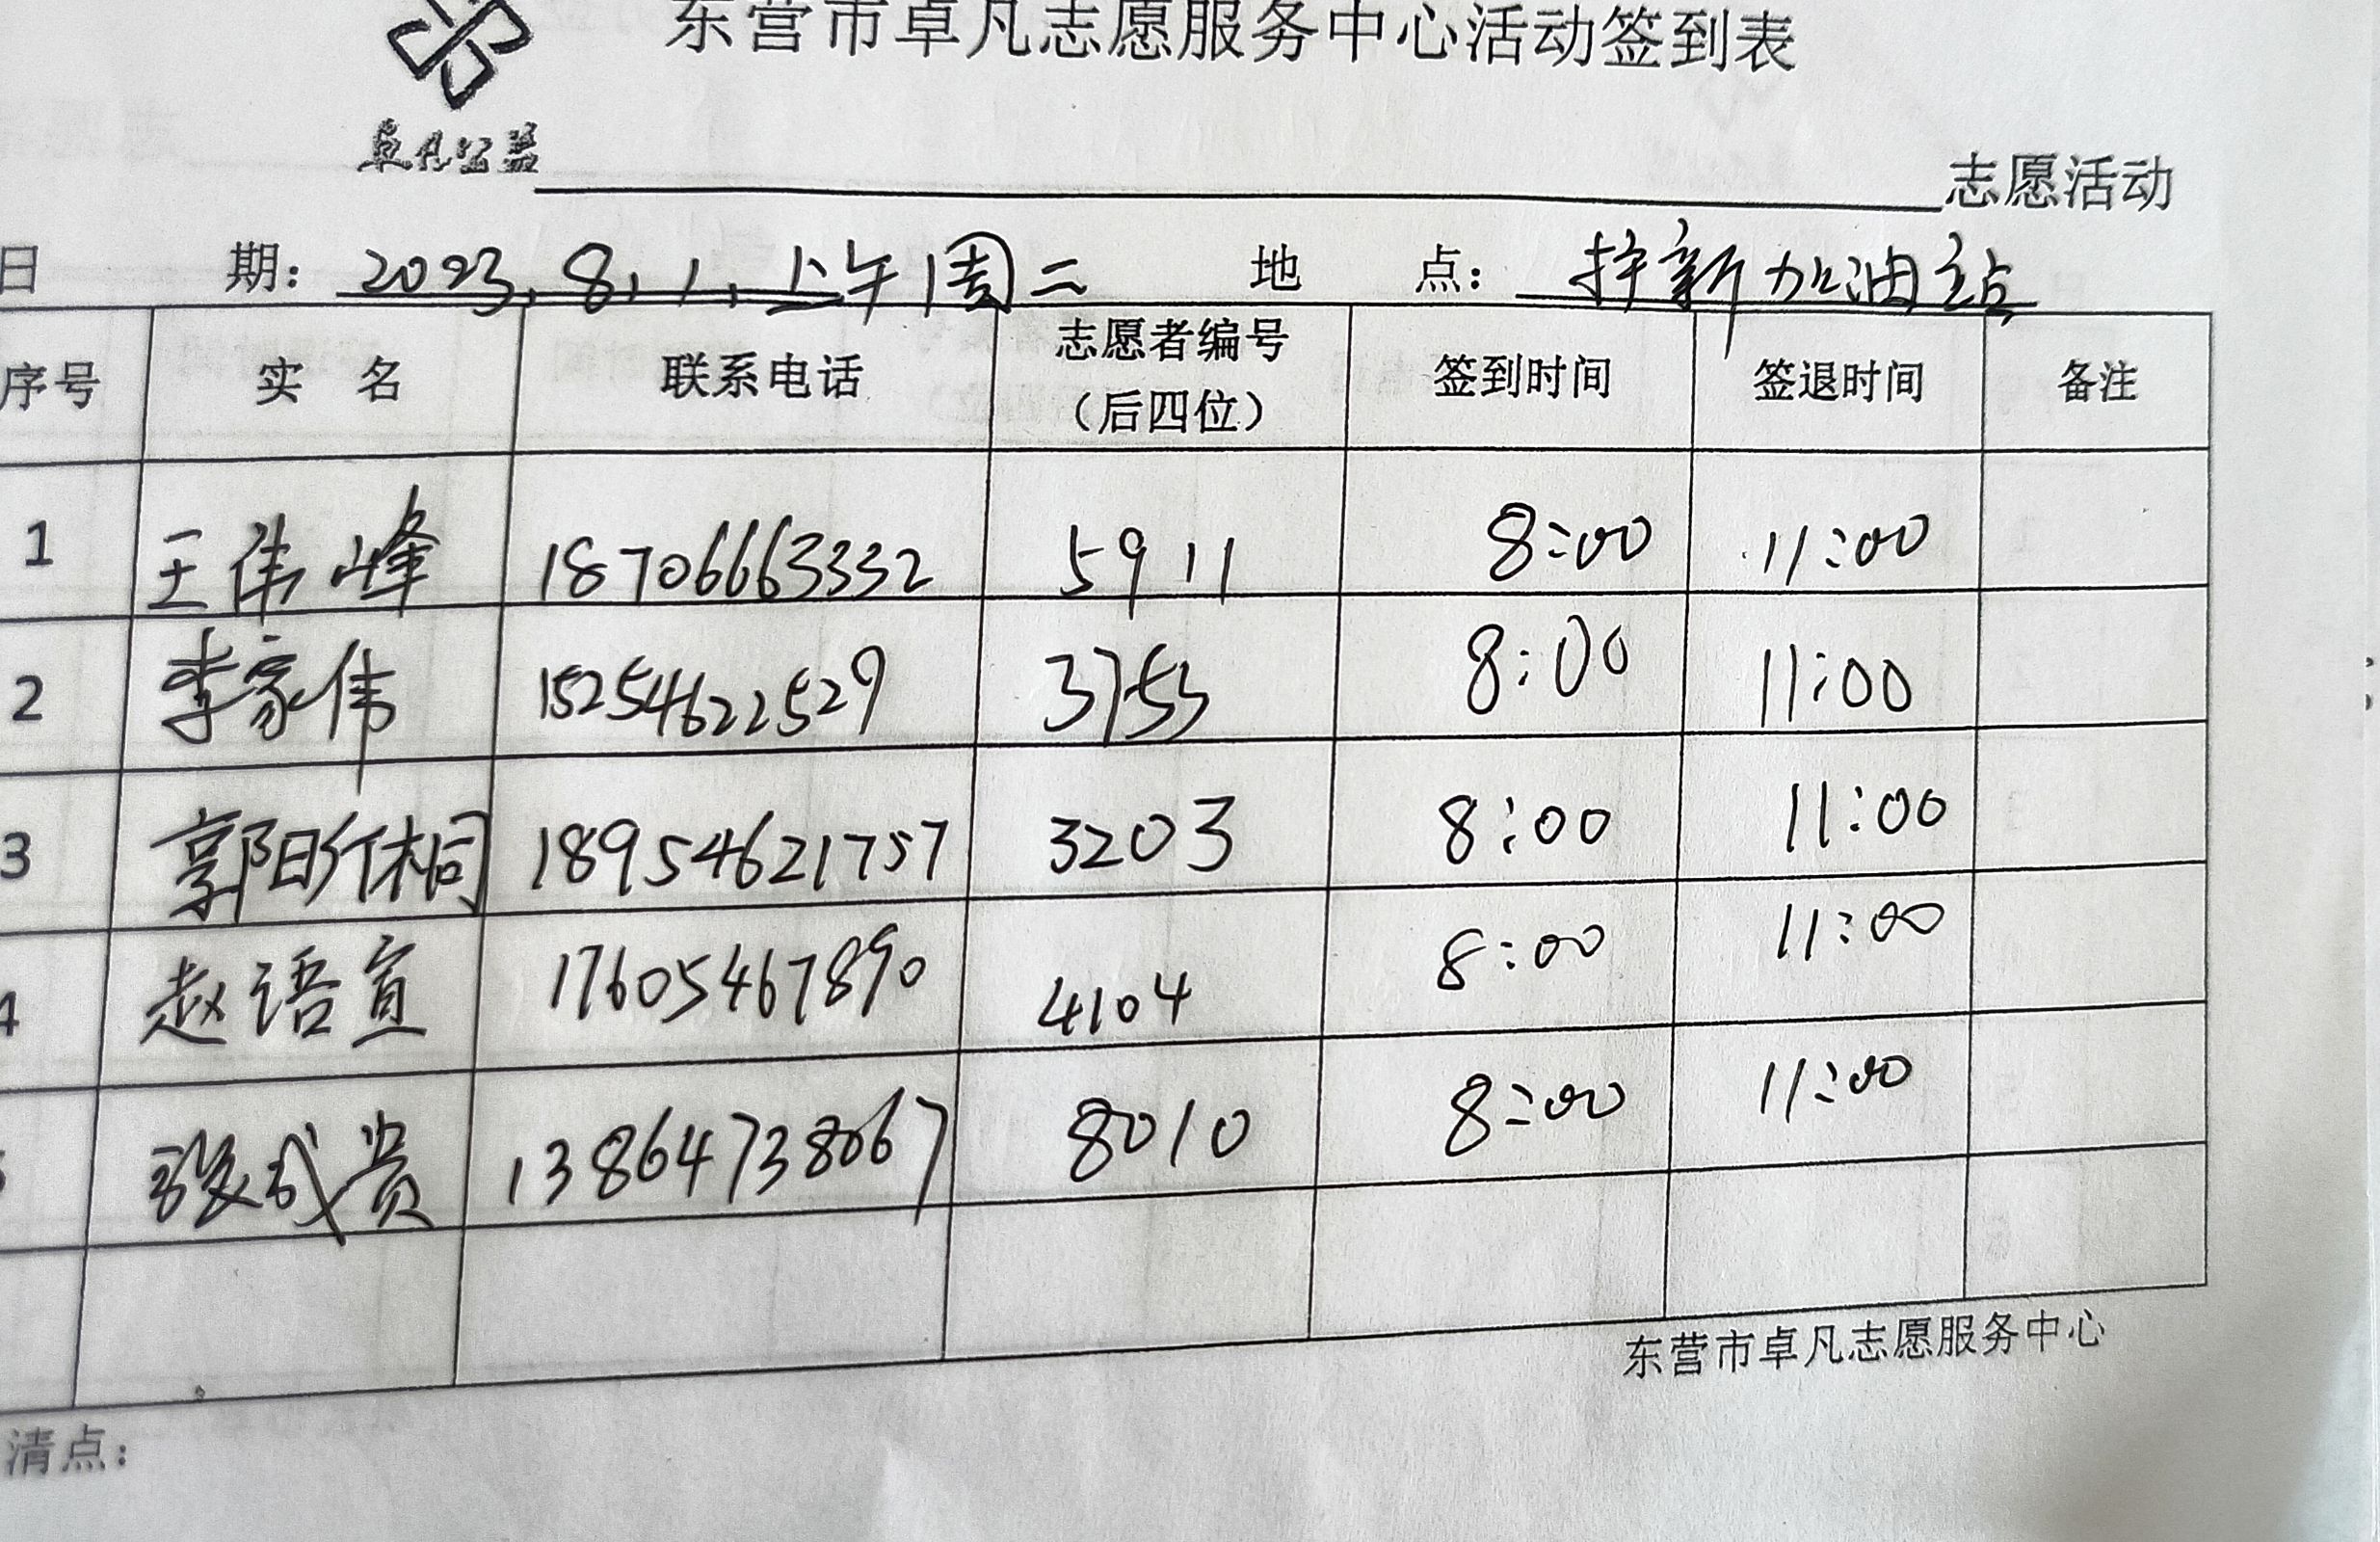 东营市卓凡志愿服务中心活动签到表
卓凡公益
志愿活动
日 期：2023.8.1.上午周二 地 点：新加油站
序号 实 名 联系电话 志愿者编号（后四位） 签到时间 签退时间 备注
1 王伟峰 18706663332 5911 8:00 11:00
2 李家伟 15254622529 3753 8:00 11:00
3 郭阳 18954621757 3203 8:00 11:00
4 赵语宣 17605467890 4104 8:00 11:00
成贵 13864738067 8010 8:00 11:00
东营市卓凡志愿服务中心
清点：